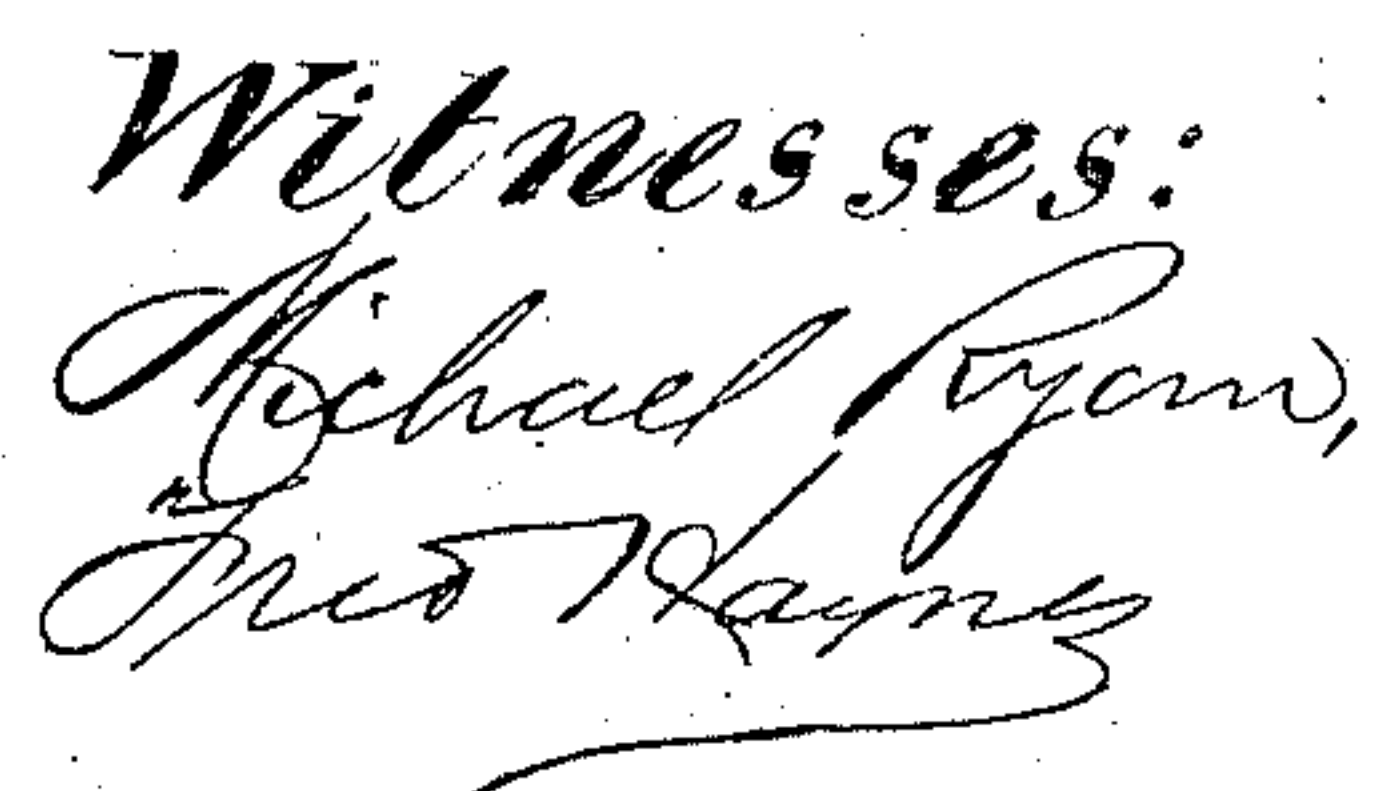 Witnesses:
Michael Ryan,
Fred Haynes